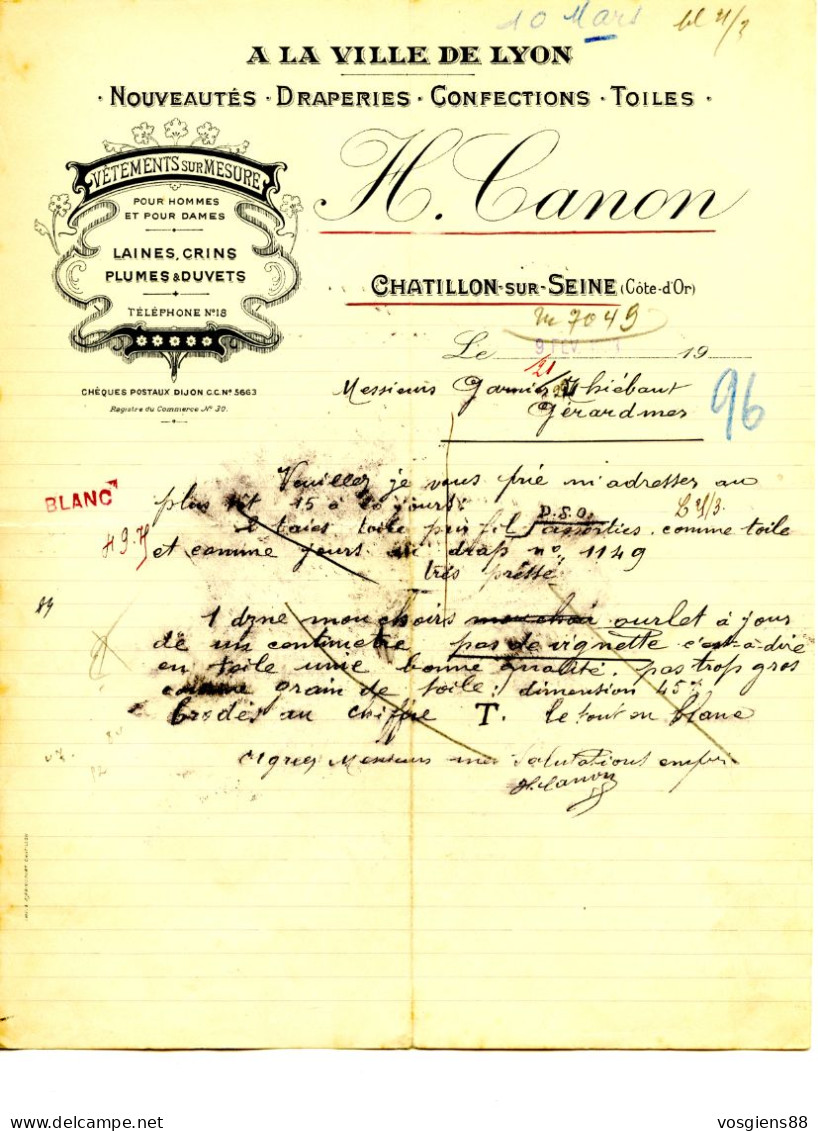 10 Mars
A LA VILLE DE LYON
· NOUVEAUTÉS · DRAPERIES · CONFECTIONS · TOILES ·
VÊTEMENTS SUR MESURE
POUR HOMMES
ET POUR DAMES
LAINES, CRINS
PLUMES & DUVETS
TÉLÉPHONE N°18
CHÈQUES POSTAUX DIJON C.C. N° 5663
Registre du Commerce N° 30.
H. Canon
CHATILLON-SUR-SEINE (Côte-d'Or)
7049
Le 9 FEV 19
21
Messieurs Garnier Thiébaut
Gérardmer
96
Veuillez je vous prie m'adresser au
BLANC
plus tôt 15 à 20 jours
D.S.O.
6 taies toile pur fil assorties comme toile
H 9.H
et comme jours au drap n° 1149
très pressé
89
1 dzne mouchoirs ourlet à jour
de un centimetre pas de vignette c'est-à-dire
en toile unie bonne qualité, pas trop gros
comme grain de toile: dimension 45
brodés au chiffre T. le tout en blanc
Agréez Messieurs mes salutations
H. Canon
vosgiens88